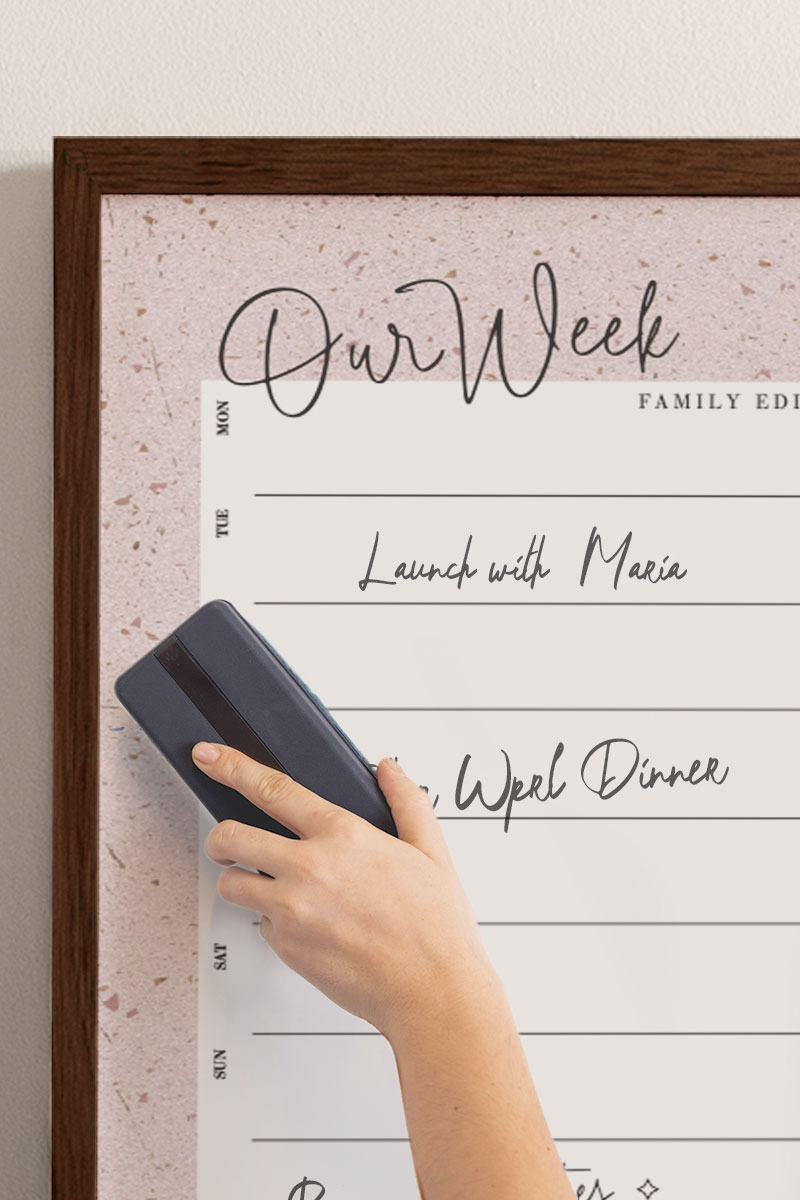 Our Week
FAMILY EDI
MON
TUE
Launch with Maria
Wprl Dinner
SAT
SUN